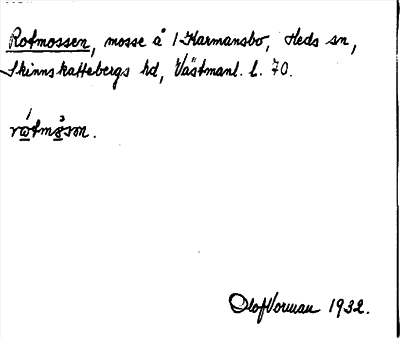 Rotmossen, mosse å 1 Karmansbo, Heds sn,
Skinnskattebergs hd, Västmanl. l. 70.
Olof Vorman 1932.